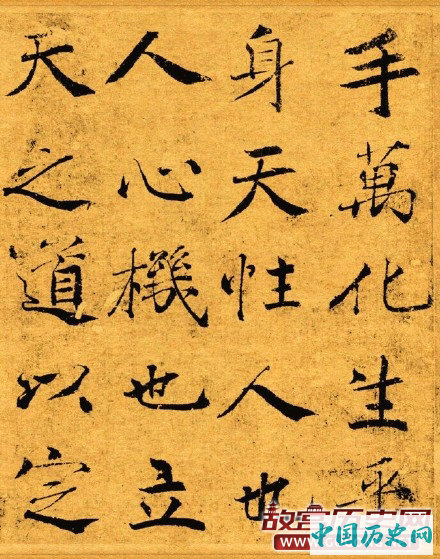 手萬化生乎
身天性人也
人心機也立
天之道以定
故宫历史网
中国历史网